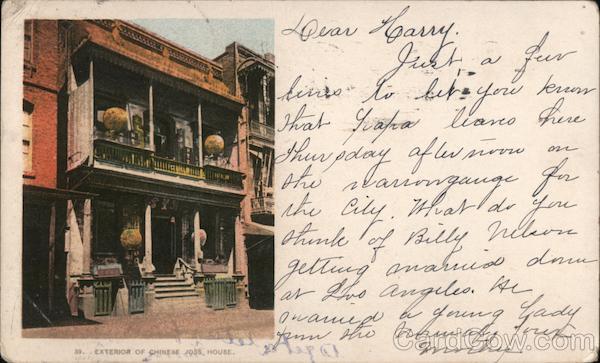 Dear Harry.
Just a few
lines to let you know
that Papa leaves here
Thursday afternoon on
the narrowgauge for
the City. What do you
think of Billy Nelson
getting married down
at Los Angeles. He
married a young Lady
from the
39. EXTERIOR OF CHINESE JOSS HOUSE.
CardCow.com